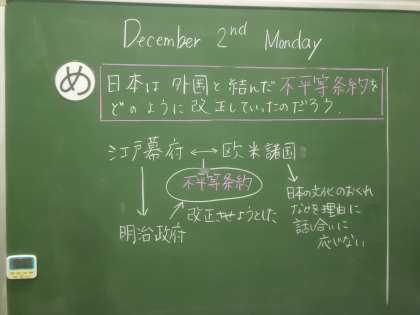 December 2nd Monday
め
日本は外国と結んだ不平等条約を
どのように改正していったのだろう。
江戸幕府 ↔ 欧米諸国
不平等条約
改正させようとした
明治政府
日本の文化のおくれ
などを理由に
話し合いに
応じない